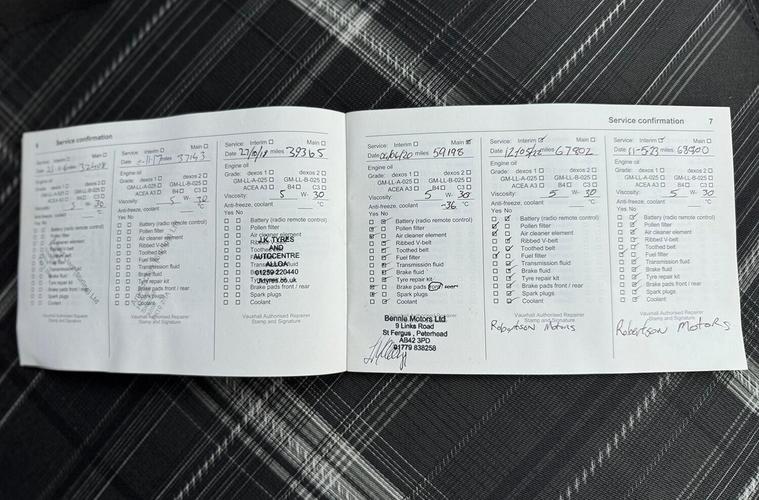 6 Service confirmation
Service: Interim Main
Date miles
Engine oil
Grade: dexos 1 dexos 2
GM-LL-A-025 GM-LL-B-025
ACEA A3 B4 C3
Viscosity: 5 W- 30
Anti-freeze, coolant °C
Yes No
Battery (radio remote control)
Pollen filter
Air cleaner element
Ribbed V-belt
Toothed belt
Fuel filter
Transmission fluid
Brake fluid
Tyre repair kit
Brake pads front / rear
Spark plugs
Coolant
Vauxhall Authorised Repairer
Stamp and Signature
Service: Interim Main
Date -11-17 miles 37143
Engine oil
Grade: dexos 1 dexos 2
GM-LL-A-025 GM-LL-B-025
ACEA A3 B4 C3
Viscosity: 5 W- 30
Anti-freeze, coolant °C
Yes No
Battery (radio remote control)
Pollen filter
Air cleaner element
Ribbed V-belt
Toothed belt
Fuel filter
Transmission fluid
Brake fluid
Tyre repair kit
Brake pads front / rear
Spark plugs
Coolant
Vauxhall Authorised Repairer
Stamp and Signature
Service: Interim Main
Date miles 39365
Engine oil
Grade: dexos 1 dexos 2
GM-LL-A-025 GM-LL-B-025
ACEA A3 B4 C3
Viscosity: 5 W- 30
Anti-freeze, coolant °C
Yes No
Battery (radio remote control)
Pollen filter
Air cleaner element
J.K. TYRES
AND
AUTOCENTRE
ALLOA
01259 220440
Jktyres.co.uk
Brake pads front / rear
Spark plugs
Coolant
Vauxhall Authorised Repairer
Stamp and Signature
Service confirmation 7
Service: Interim Main
Date 04/06/20 miles 59198
Engine oil
Grade: dexos 1 dexos 2
GM-LL-A-025 GM-LL-B-025
ACEA A3 B4 C3
Viscosity: 5 W- 30
Anti-freeze, coolant -36 °C
Yes No
Battery (radio remote control)
Pollen filter
Air cleaner element
Ribbed V-belt
Toothed belt
Fuel filter
Transmission fluid
Brake fluid
Tyre repair kit
Brake pads front / rear
Spark plugs
Coolant
Bennie Motors Ltd
9 Links Road
St Fergus, Peterhead
AB42 3PD
01779 838258
Service: Interim Main
Date 12/05/22 miles 67802
Engine oil
Grade: dexos 1 dexos 2
GM-LL-A-025 GM-LL-B-025
ACEA A3 B4 C3
Viscosity: 5 W- 30
Anti-freeze, coolant °C
Yes No
Battery (radio remote control)
Pollen filter
Air cleaner element
Ribbed V-belt
Toothed belt
Fuel filter
Transmission fluid
Brake fluid
Tyre repair kit
Brake pads front / rear
Spark plugs
Coolant
Vauxhall Authorised Repairer
Stamp and Signature
Robertson Motors
Service: Interim Main
Date 11-5-23 miles 68900
Engine oil
Grade: dexos 1 dexos 2
GM-LL-A-025 GM-LL-B-025
ACEA A3 B4 C3
Viscosity: 5 W- 30
Anti-freeze, coolant °C
Yes No
Battery (radio remote control)
Pollen filter
Air cleaner element
Ribbed V-belt
Toothed belt
Fuel filter
Transmission fluid
Brake fluid
Tyre repair kit
Brake pads front / rear
Spark plugs
Coolant
Vauxhall Authorised Repairer
Stamp and Signature
Robertson Motors